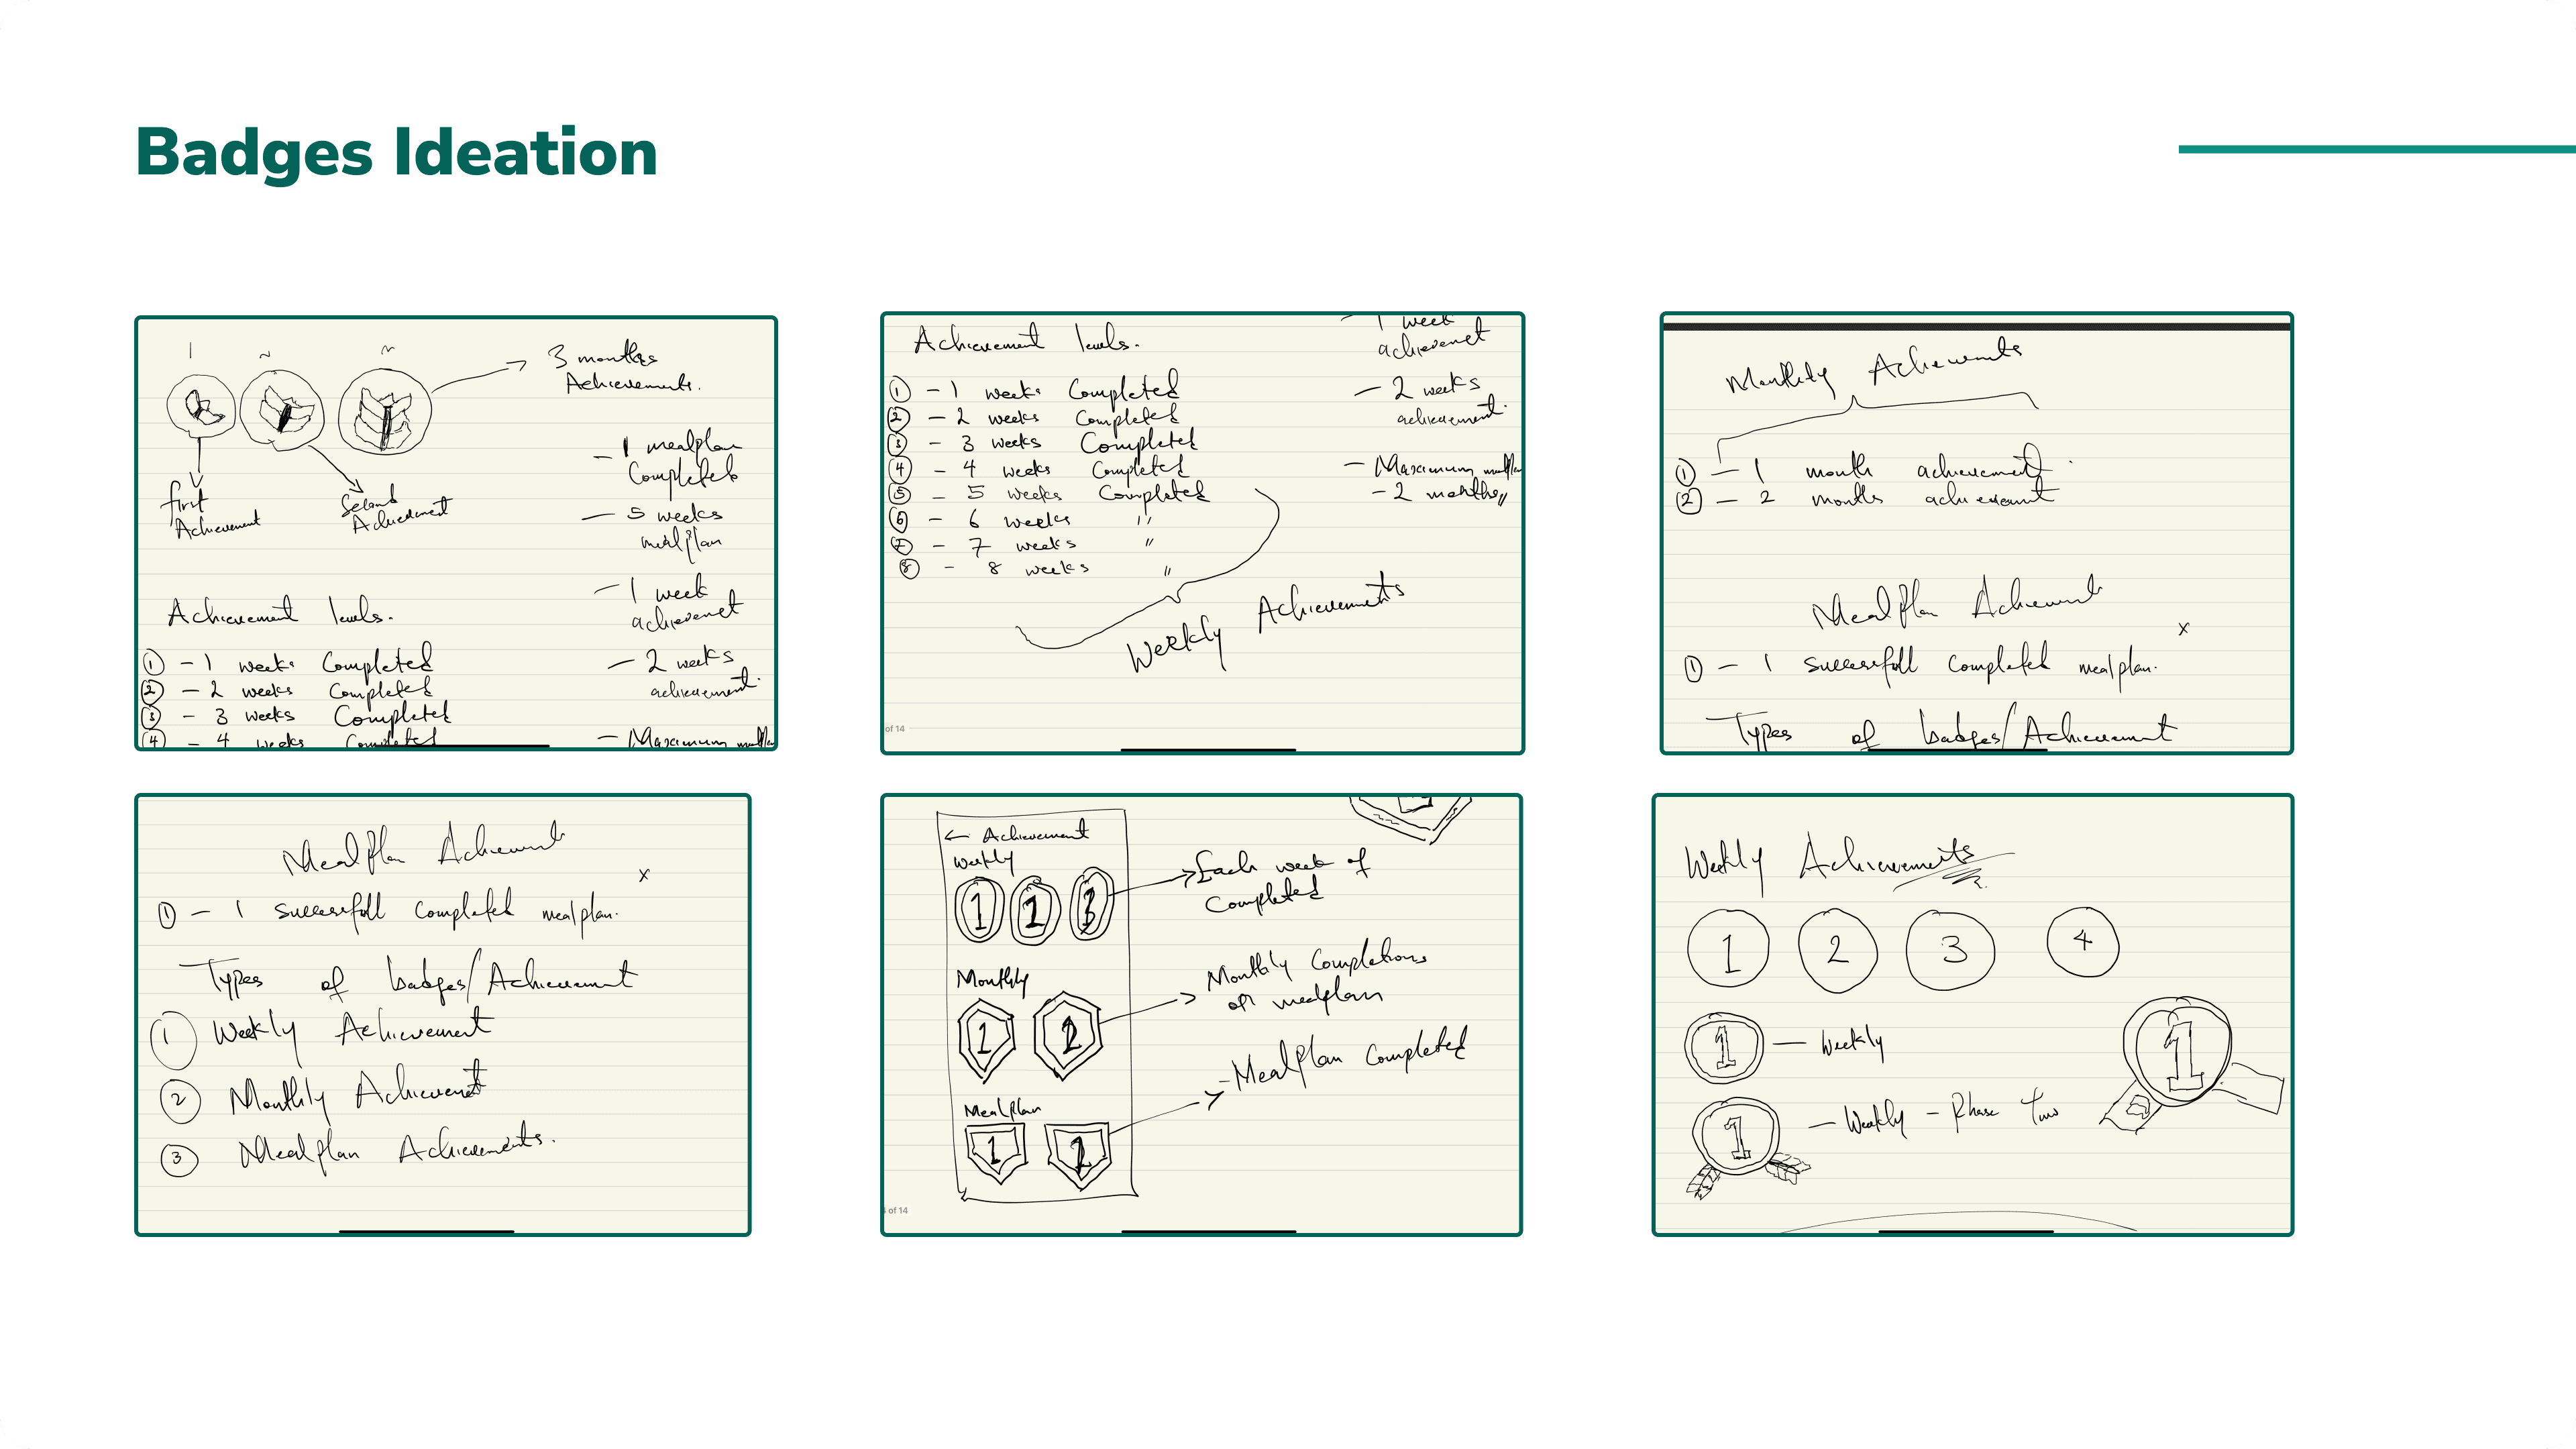 Badges Ideation
1 ~ ~
3 months
Achievements.
first
Achievement
Second
Achievement
- 1 mealplan
Completed
- 5 weeks
mealplan
- 1 week
achievenet
Achievement levels.
① - 1 week Completed
② - 2 weeks Completed
③ - 3 weeks Completed
④ - 4 weeks Completed
- 2 weeks
achievement.
- Maximum mealplan
Achievement levels.
- 1 week
achievenet
① - 1 week Completed
② - 2 weeks Completed
③ - 3 weeks Completed
④ - 4 weeks Completed
⑤ - 5 weeks Completed
⑥ - 6 weeks "
⑦ - 7 weeks "
⑧ - 8 weeks "
- 2 weeks
achievement.
- Maximum mealplan
- 2 months
Weekly Achievements
of 14
Monthly Achievements
① - 1 month achievement.
② - 2 months achievement
Mealplan Achievement
x
① - 1 successfull completed mealplan.
Types of badges/Achievement
Mealplan Achievement
x
① - 1 successfull completed mealplan.
Types of badges/Achievement
① Weekly Achievement
② Monthly Achievement
③ Mealplan Achievements.
← Achievement
Weekly
1 2 3
Each week of
Completed
Monthly
1 2
Monthly Completions
of mealplan
Mealplan
1 2
- Mealplan Completed
of 14
Weekly Achievements
1 2 3 4
1 - Weekly
1 - Weekly - Phase Two
1